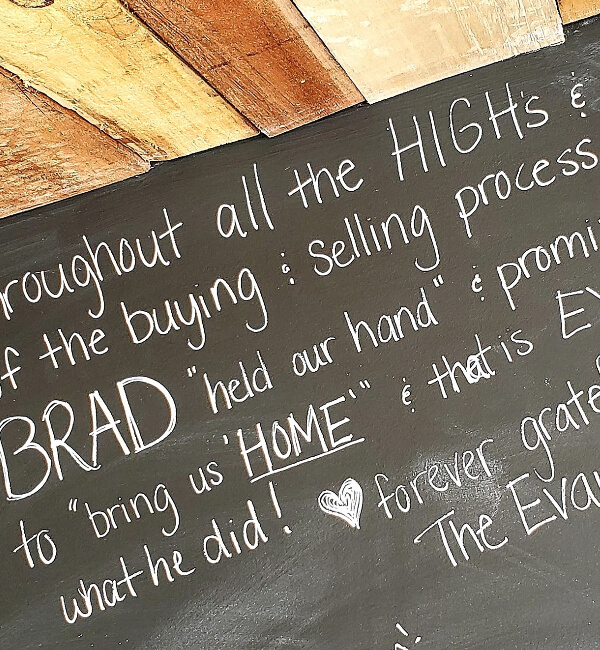 roughout all the HIGH's &
of the buying & selling process
BRAD "held our hand" & promi
to "bring us 'HOME'" & that is EV
what he did! ♥ forever grate
The Eva